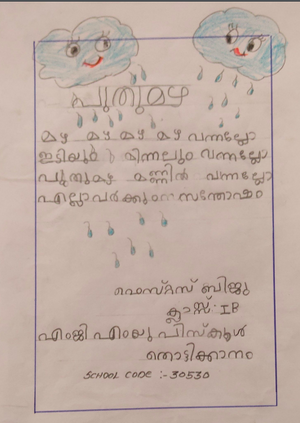 പുതുമഴ
മഴ മഴ മഴ മഴ വന്നല്ലോ
ഇടിയും മിന്നലും വന്നല്ലോ
പുതുമഴ മണ്ണിൽ വന്നല്ലോ
എല്ലാവർക്കും സന്തോഷം
ബിജു
ക്ലാസ്സ് : I B
എംജി എംയു പിസ്കൂൾ
തൊട്ടിക്കാനം
SCHOOL CODE :- 30530